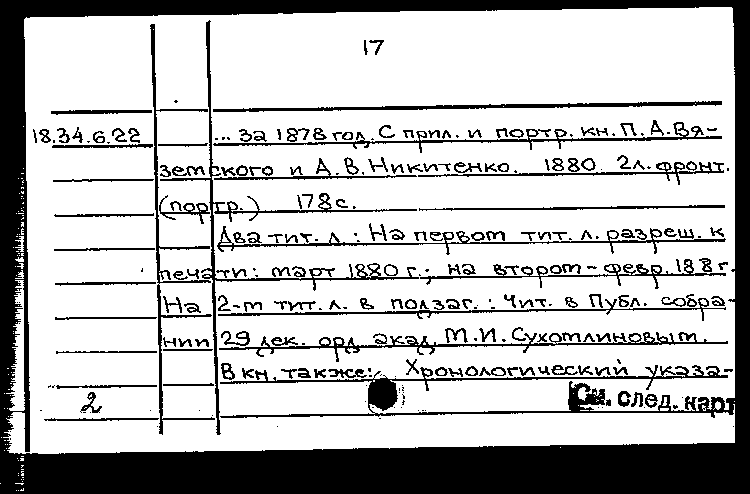 17
18.34.6.22 ... за 1878 год. С прил. и портр. кн. П.А.Вя-
земского и А.В.Никитенко. 1880 2л.фронт.
(портр.) 178с.
Два тит. л.: На первом тит. л. разреш. к
печати: март 1880 г.; на втором - февр. 188 г.
На 2-м тит. л. в подзаг.: Чит. в Публ. собра-
нии 29 дек. орд. акад. М.И.Сухомлиновым.
В кн. также: Хронологический указа-
2 См. след. карт